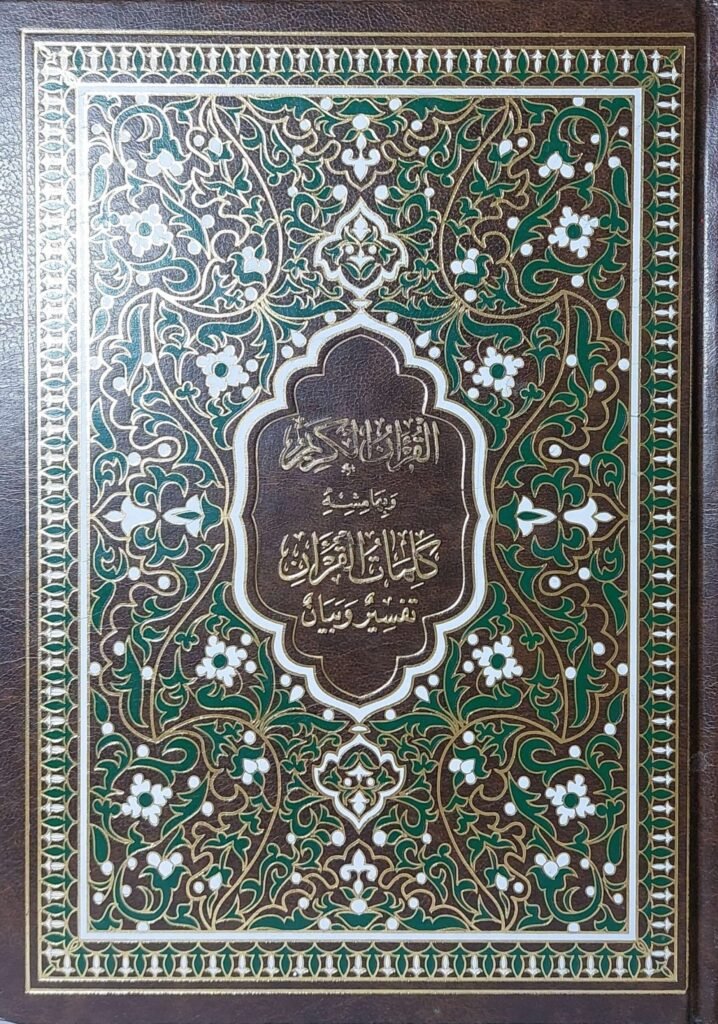 القرآن الكريم
وبهامشه
كلمات القرآن
تفسير وبيان